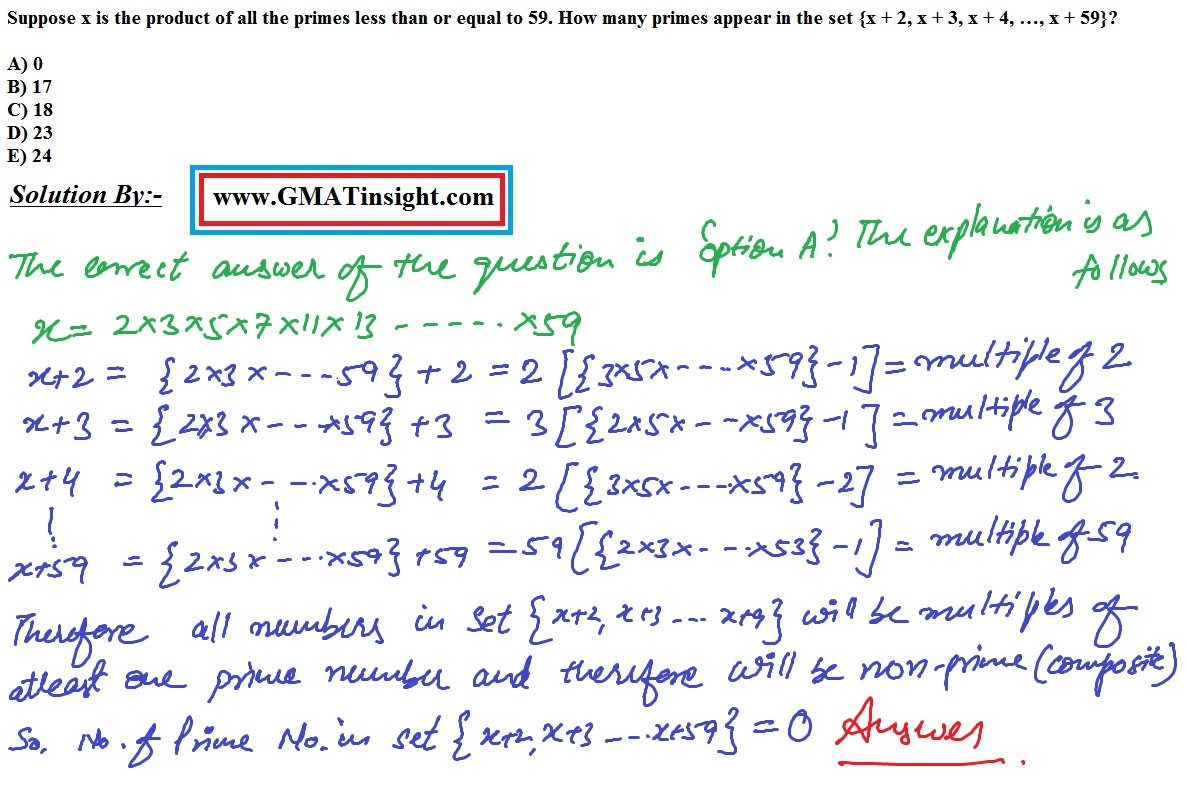 Suppose x is the product of all the primes less than or equal to 59. How many primes appear in the set {x + 2, x + 3, x + 4, …, x + 59}?
A) 0
B) 17
C) 18
D) 23
E) 24
Solution By:- www.GMATinsight.com
The correct answer of the question is Option A! The explanation is as
follows
x = 2×3×5×7×11×13 ------ ×59
x+2 = {2×3×----59} + 2 = 2[{3×5×----×59}-1] = multiple of 2
x+3 = {2×3×---×59} +3 = 3[{2×5×---×59}-1] = multiple of 3
x+4 = {2×3×---×59} +4 = 2[{3×5×----×59}-2] = multiple of 2.
x+59 = {2×3×----×59} +59 = 59[{2×3×----×53}-1] = multiple of 59
Therefore all numbers in set {x+2, x+3 --- x+9} will be multiples of
atleast one prime number and therefore will be non-prime (composite)
So, No. of Prime No. in set {x+2, x+3 ---- x+59} = 0 Answer.